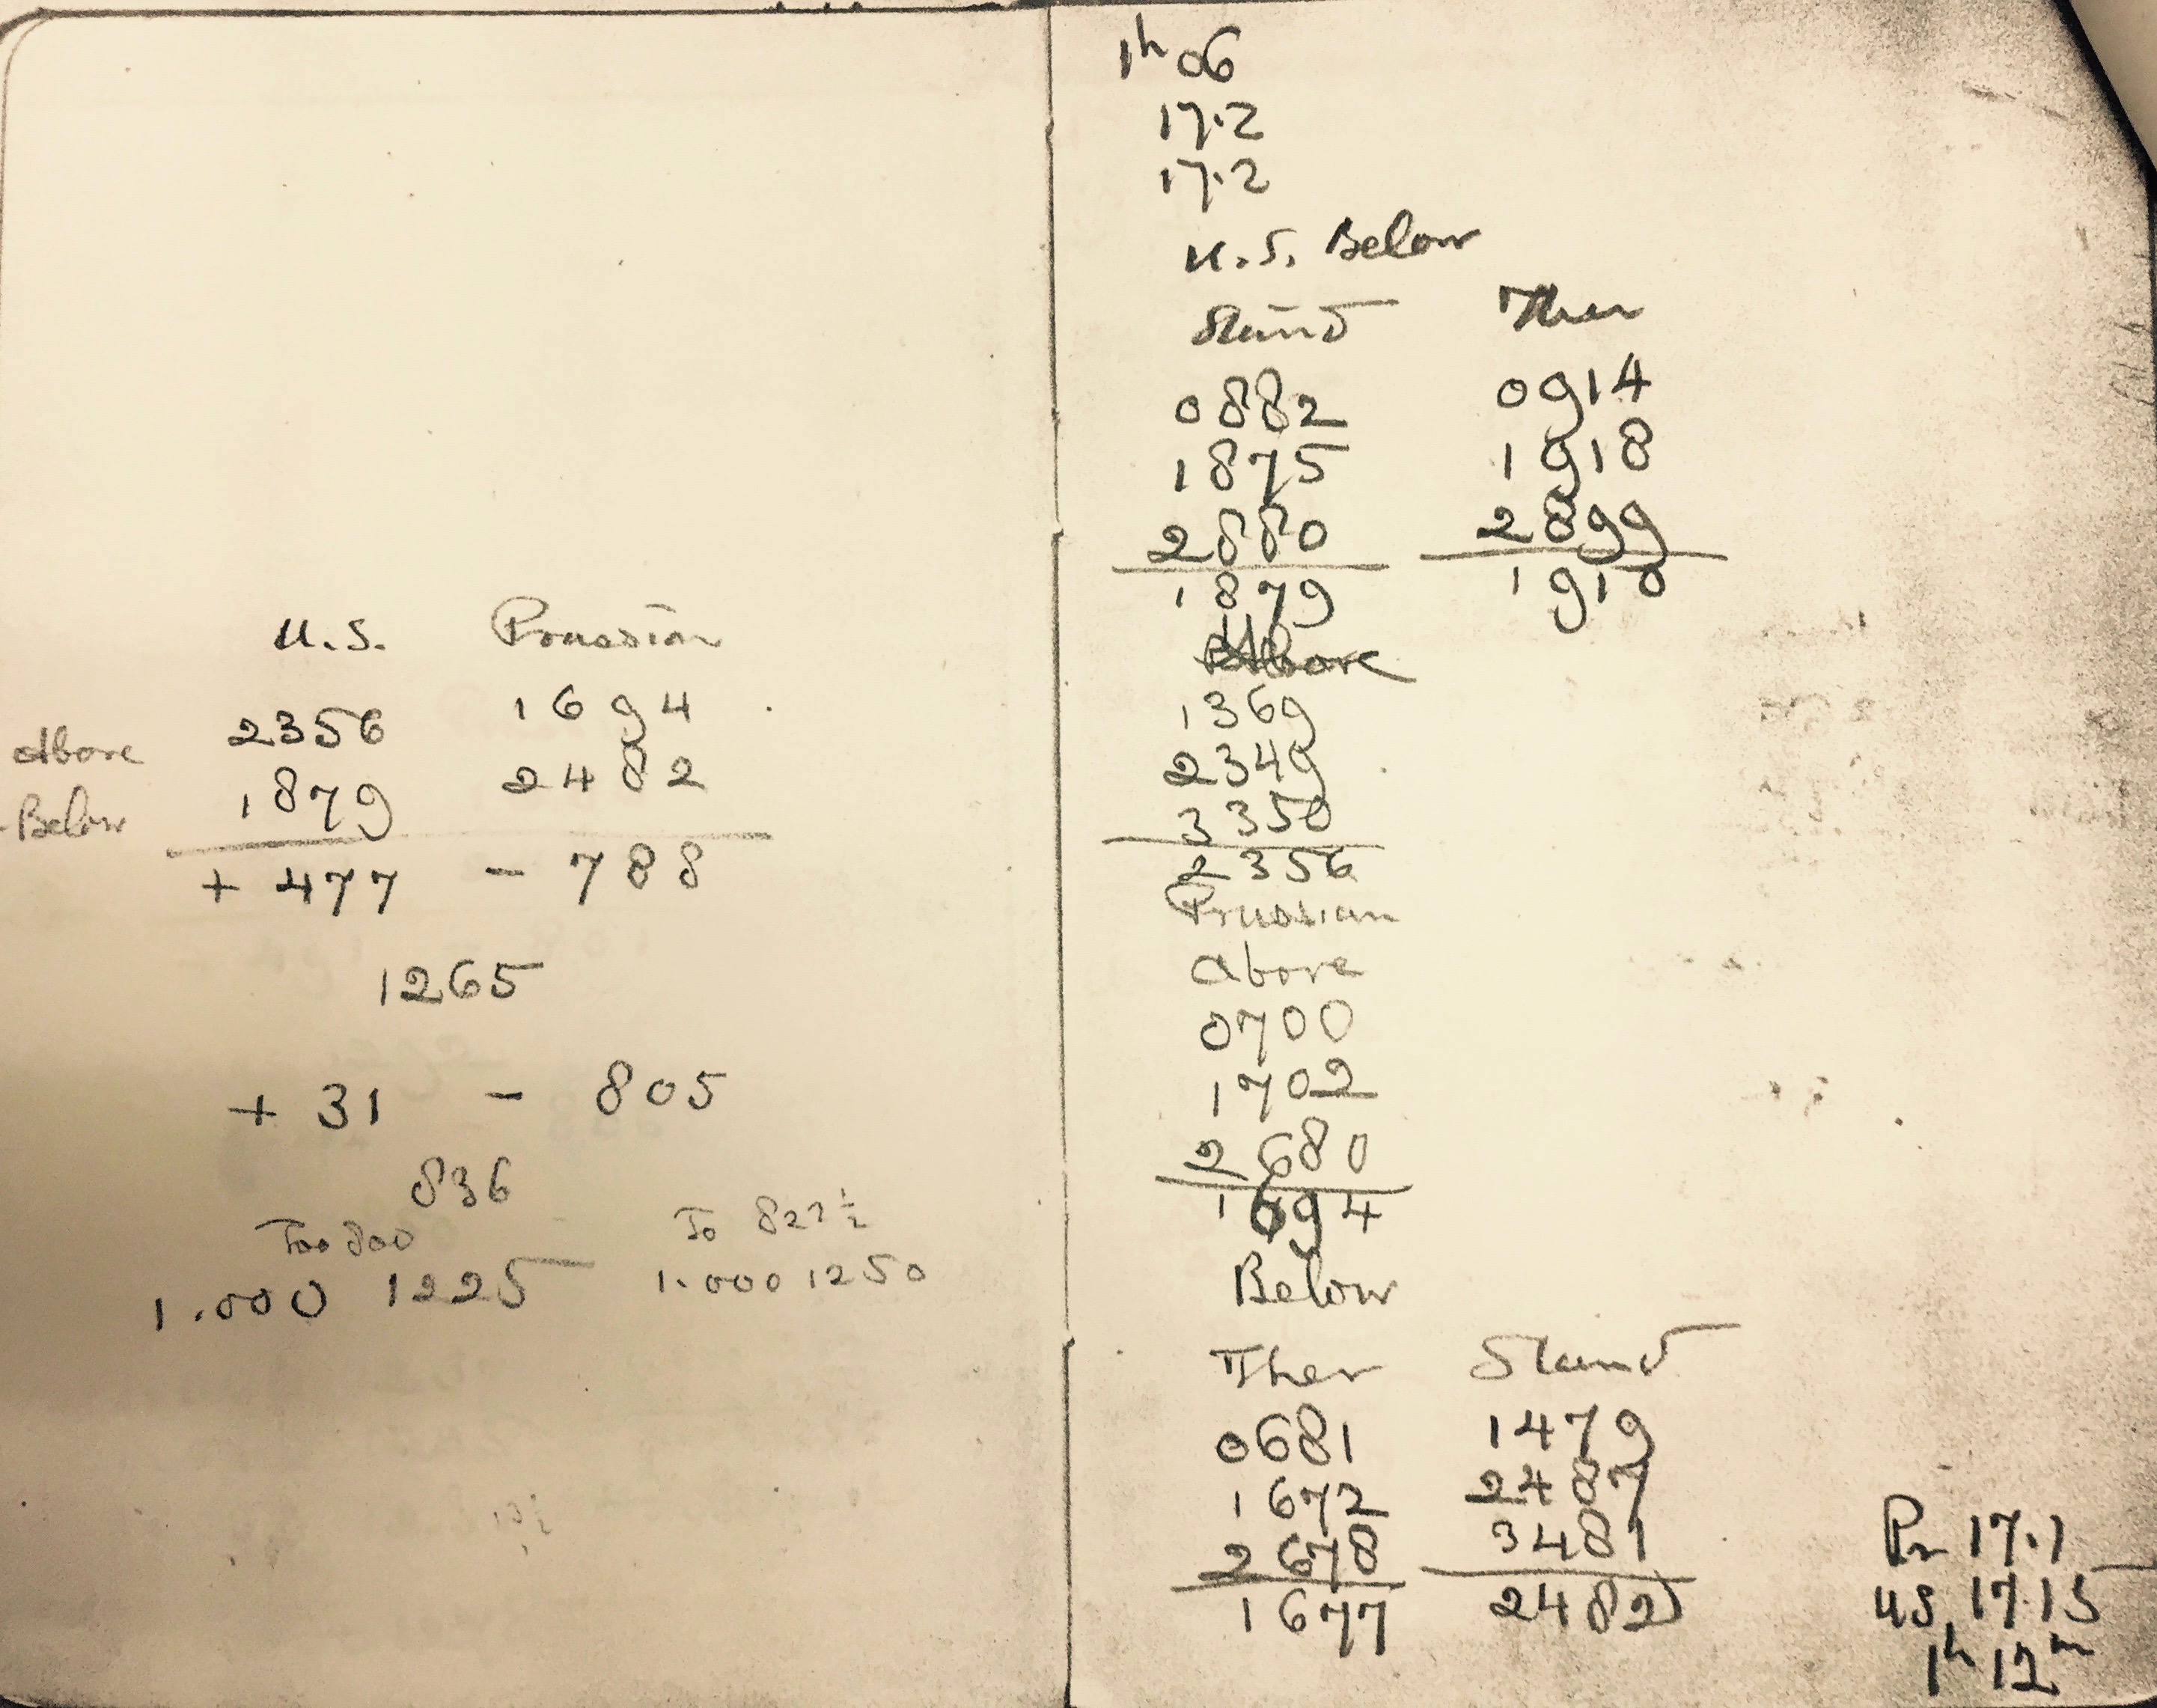 U.S. Prussian
Above 2356 1694
Below 1879 2482
+ 477 - 788
1265
+ 31 - 805
836
Too 800 To 827½
1.000 1225 1.000 1250
1h 06
17.2
17.2
U.S. Below
Stand Ther
0882 0914
1875 1918
2880 2899
1879 1910
Above
1369
2349
3350
2356
Prussian
Above
0700
1702
2680
1694
Below
Ther Stand
0681 1479
1672 2487
2678 3481
1677 2482
Pr 17.1
US 17.15
1h 12m